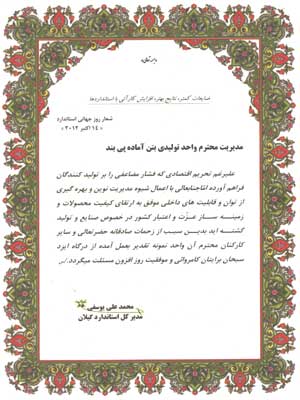 ضایعات کمتر، نتایج بهتره افزایش کارآئی با استانداردها
شعار روز جهانی استاندارد
« ۱۴ اکتبر ۲۰۱۲ »
مدیریت محترم واحد تولیدی بتن آماده پی بند
علیرغم تحریم اقتصادی که فشار مضاعفی را بر تولید کنندگان
فراهم آورده امّاجنابعالی با اعمال شیوه مدیریت نوین و بهره گیری
از توان و قابلیت های داخلی موفق به ارتقای کیفیت محصولات و
زمینه ساز عزت و اعتبار کشور در خصوص صنایع و تولید
گشته اید بدین سبب از زحمات صادقانه حضرتعالی و سایر
کارکنان محترم آن واحد نمونه تقدیر بعمل آمده از درگاه ایزد
سبحان برایتان کامروائی و موفقیت روز افزون مسئلت میگردد./س
محمد علی یوسفی
مدیر کل استاندارد گیلان